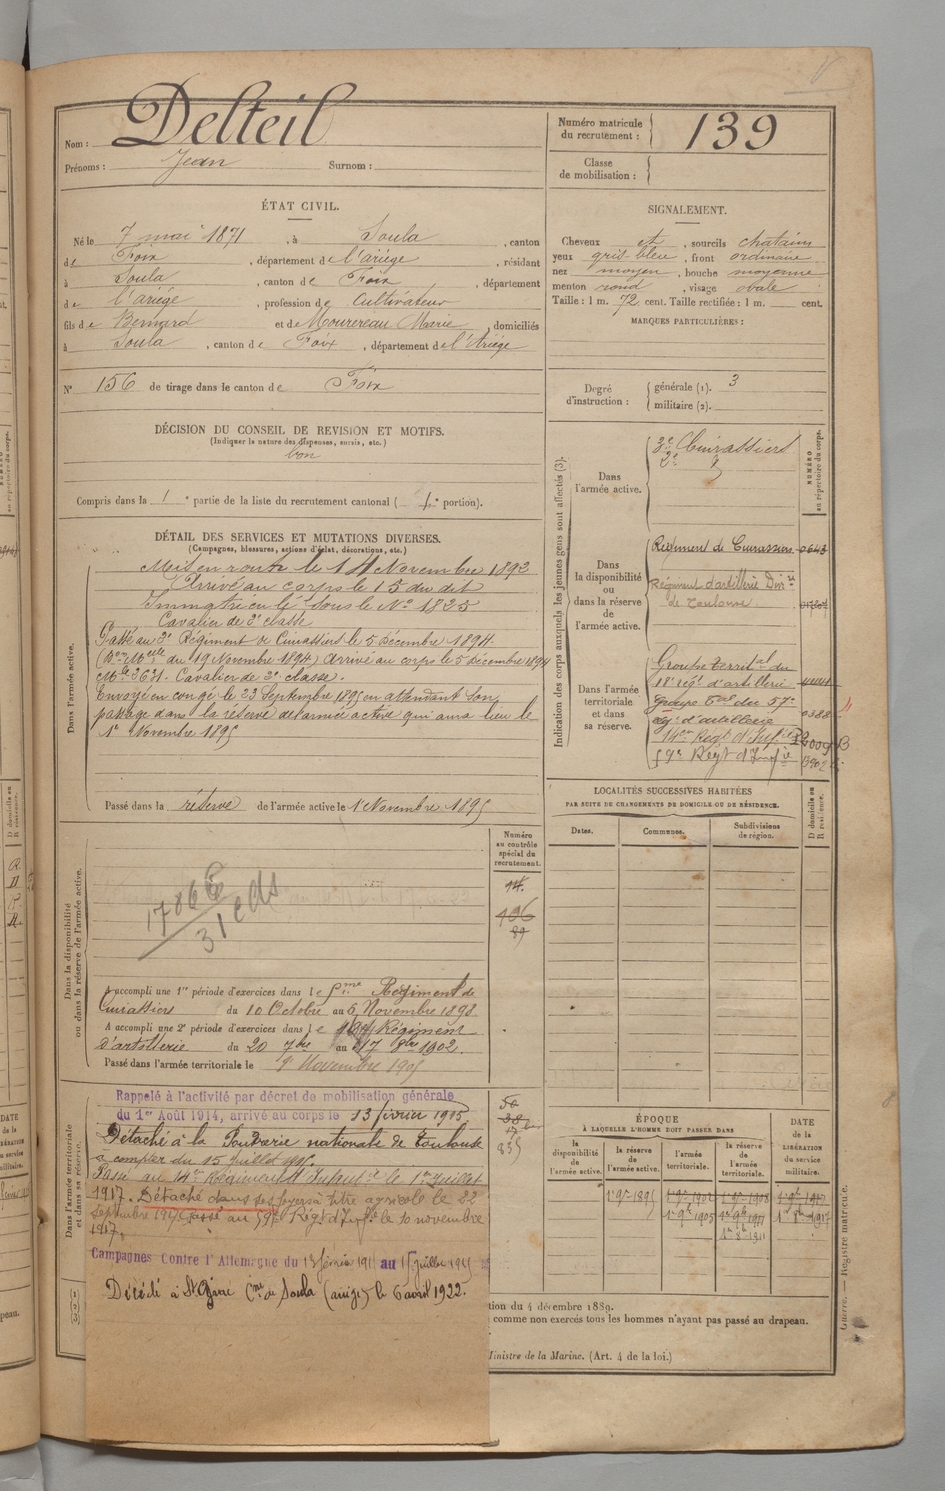 Nom : Delteil
Prénoms : Jean Surnom :
Numéro matricule
du recrutement : 139
Classe
de mobilisation :
ÉTAT CIVIL.
Né le 7 mai 1871, à Soula, canton
de Foix, département de l'ariége, résidant
à Soula, canton de Foix, département
de l'ariége, profession de Cultivateur
fils de Bernard et de Mourereau Marie, domiciliés
à Soula, canton de Foix, département de l'Ariége
N° 156 de tirage dans le canton de Foix
SIGNALEMENT.
Cheveux et, sourcils chatains
yeux gris-bleu, front ordinaire
nez moyen, bouche moyenne
menton rond, visage ovale
Taille : 1 m. 72 cent. Taille rectifiée : 1 m. cent.
MARQUES PARTICULIÈRES :
Degré
d'instruction :
générale (1). 3
militaire (2).
DÉCISION DU CONSEIL DE REVISION ET MOTIFS.
(Indiquer la nature des dispenses, sursis, etc.)
bon
Compris dans la 1e partie de la liste du recrutement cantonal ( 1e portion).
DÉTAIL DES SERVICES ET MUTATIONS DIVERSES.
(Campagnes, blessures, actions d'éclat, décorations, etc.)
Dans l'armée active.
Mis en route le 14 Novembre 1892
Arrivé au corps le 15 du dit
Immatcé en lé sous le No 1825
Cavalier de 2e classe
Passé au 2e Régiment de Cuirassiers le 5 décembre 1894
du 19 Novembre 1894) Arrivé au corps le 5 décembre 1894
Mle 3631. Cavalier de 2e classe.
Envoyé en congé le 23 Septembre 1895 en attendant son
passage dans la réserve de l'armée active qui aura lieu le
1er Novembre 1895
Passé dans la réserve de l'armée active le 1er Novembre 1895
Indication des corps auxquels les jeunes gens sont affectés (3).
NUMÉRO
au répertoire du corps.
Dans
l'armée active.
3e Cuirassiers
2e
Dans
la disponibilité
ou
dans la réserve
de
l'armée active.
Régiment de Cuirassiers 0643
Régiment d'artillerie Divre
de Toulouse
Dans l'armée
territoriale
et dans
sa réserve.
Groupe territal du
18e régt d'artillerie
Groupe Tal du 57e
régt d'artillerie 0388
14er Regt d'Infie 12009 B
59e Regt d'Infie
LOCALITÉS SUCCESSIVES HABITÉES
PAR SUITE DE CHANGEMENTS DE DOMICILE OU DE RÉSIDENCE.
Dates.
Communes.
Subdivisions
de région.
D domicile ou
R résidence.
Dans la disponibilité
ou dans la réserve de l'armée active.
Numéro
au contrôle
spécial du
recrutement.
14.
406
89
31 eds
A accompli une 1re période d'exercices dans le Régiment de
Cuirassiers du 10 Octobre au 6 Novembre 1898
A accompli une 2e période d'exercices dans le Régiment
D'artillerie du 20 7bre au 17 8bre 1902.
Passé dans l'armée territoriale le 1er Novembre 1905
Dans l'armée territoriale
et dans sa réserve.
Rappelé à l'activité par décret de mobilisation générale
du 1er Août 1914, arrivé au corps le 13 février 1915
Détaché à la Poudrerie nationale de Toulouse
à compter du 15 Juillet 1915.
Passé au 14e Régiment d'Infantie le 1er juillet
1917. Détaché dans ses foyers à titre agricole le 22
septembre 1917. Passé au 59e Régt d'Infie le 10 novembre
1917.
Campagnes Contre l'Allemagne du 13 février 1915 au 15 juillet 1915
Décédé à Cne de Soula (ariège) le 6 avril 1922.
50
38
17
835
ÉPOQUE
À LAQUELLE L'HOMME DOIT PASSER DANS
la
disponibilité
de
l'armée active.
la réserve
de
l'armée active.
l'armée
territoriale.
la réserve
de
l'armée
territoriale.
DATE
de la
LIBÉRATION
du service
militaire.
1er 9re 1895 1er 9re 1902 1er 9re 1908 1er 9re 1917
1er 9re 1905 1er 9re 1911 1er 8re 1917
1er 8re 1911
tion du 4 décembre 1889.
comme non exercés tous les hommes n'ayant pas passé au drapeau.
Ministre de la Marine. (Art. 4 de la loi.)
Guerre. — Registre matricule.